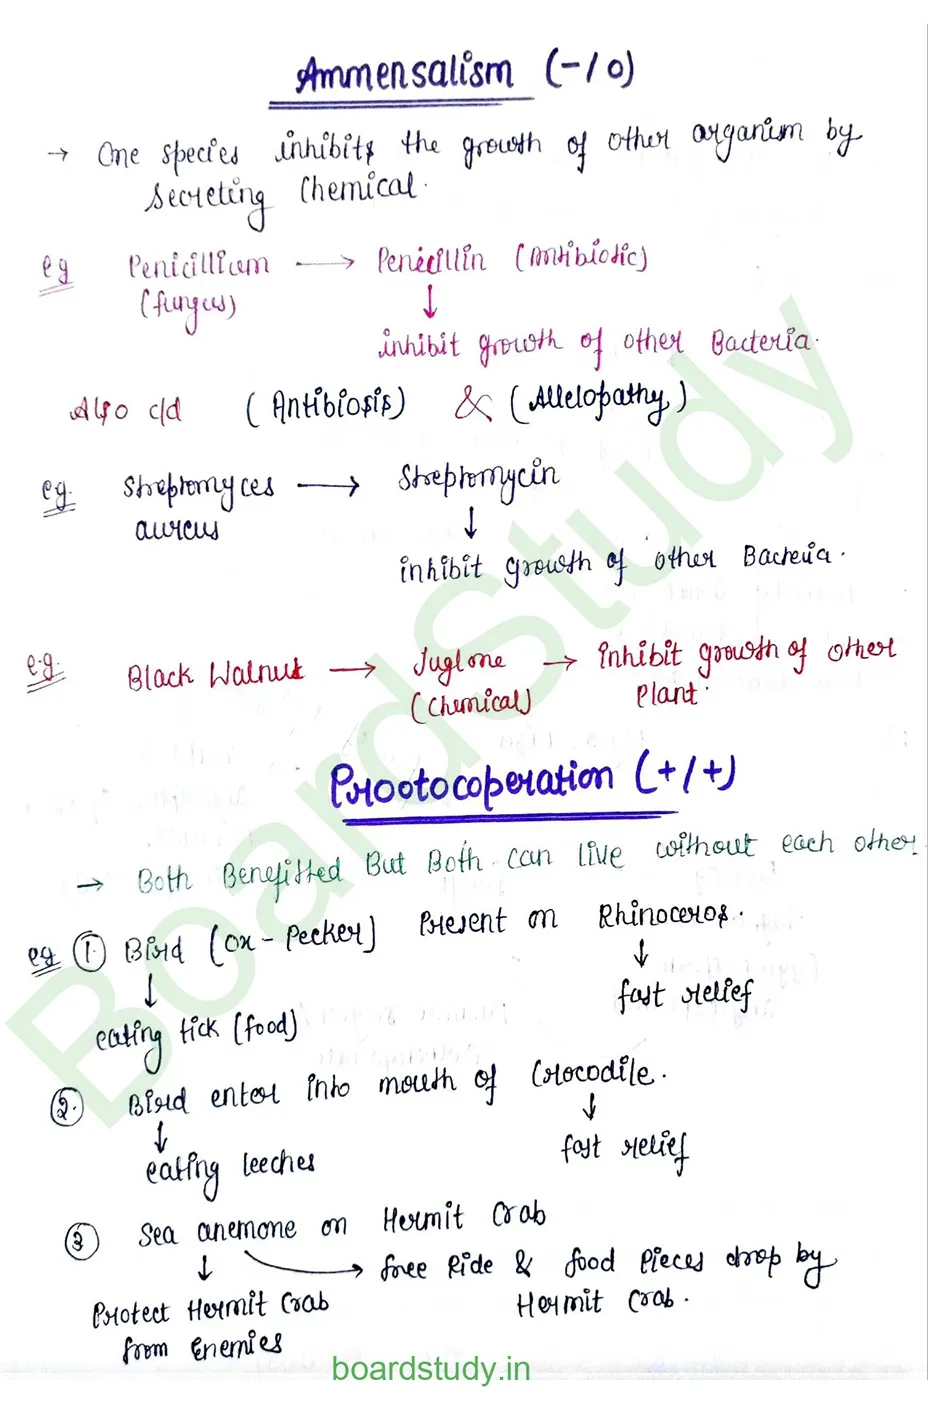 Ammensalism (-/0)
→ One species inhibits the growth of other organism by
secreting Chemical.
eg Penicillium → Penicillin (Antibiotic)
(fungus) ↓
inhibit growth of other Bacteria.
Also c/d (Antibiosis) & (Allelopathy)
eg. Streptomyces → Streptomycin
aureus ↓
inhibit growth of other Bacteria.
e.g. Black Walnut → Juglone → inhibit growth of other
(Chemical) Plant.
Prootocoperation (+/+)
→ Both Benefitted But Both can live without each other
eg ① Bird (ox-Pecker) Present on Rhinoceros.
↓ ↓
eating tick (food) fast relief
②. Bird enter into mouth of Crocodile.
↓ ↓
eating leeches fast relief
③ Sea anemone on Hermit Crab
↓ → free Ride & food Pieces drop by
Protect Hermit Crab Hermit Crab.
from Enemies
boardstudy.in
BoardStudy